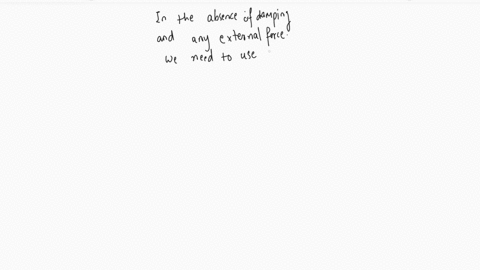 In the absence of damping
and any external force
we need to use